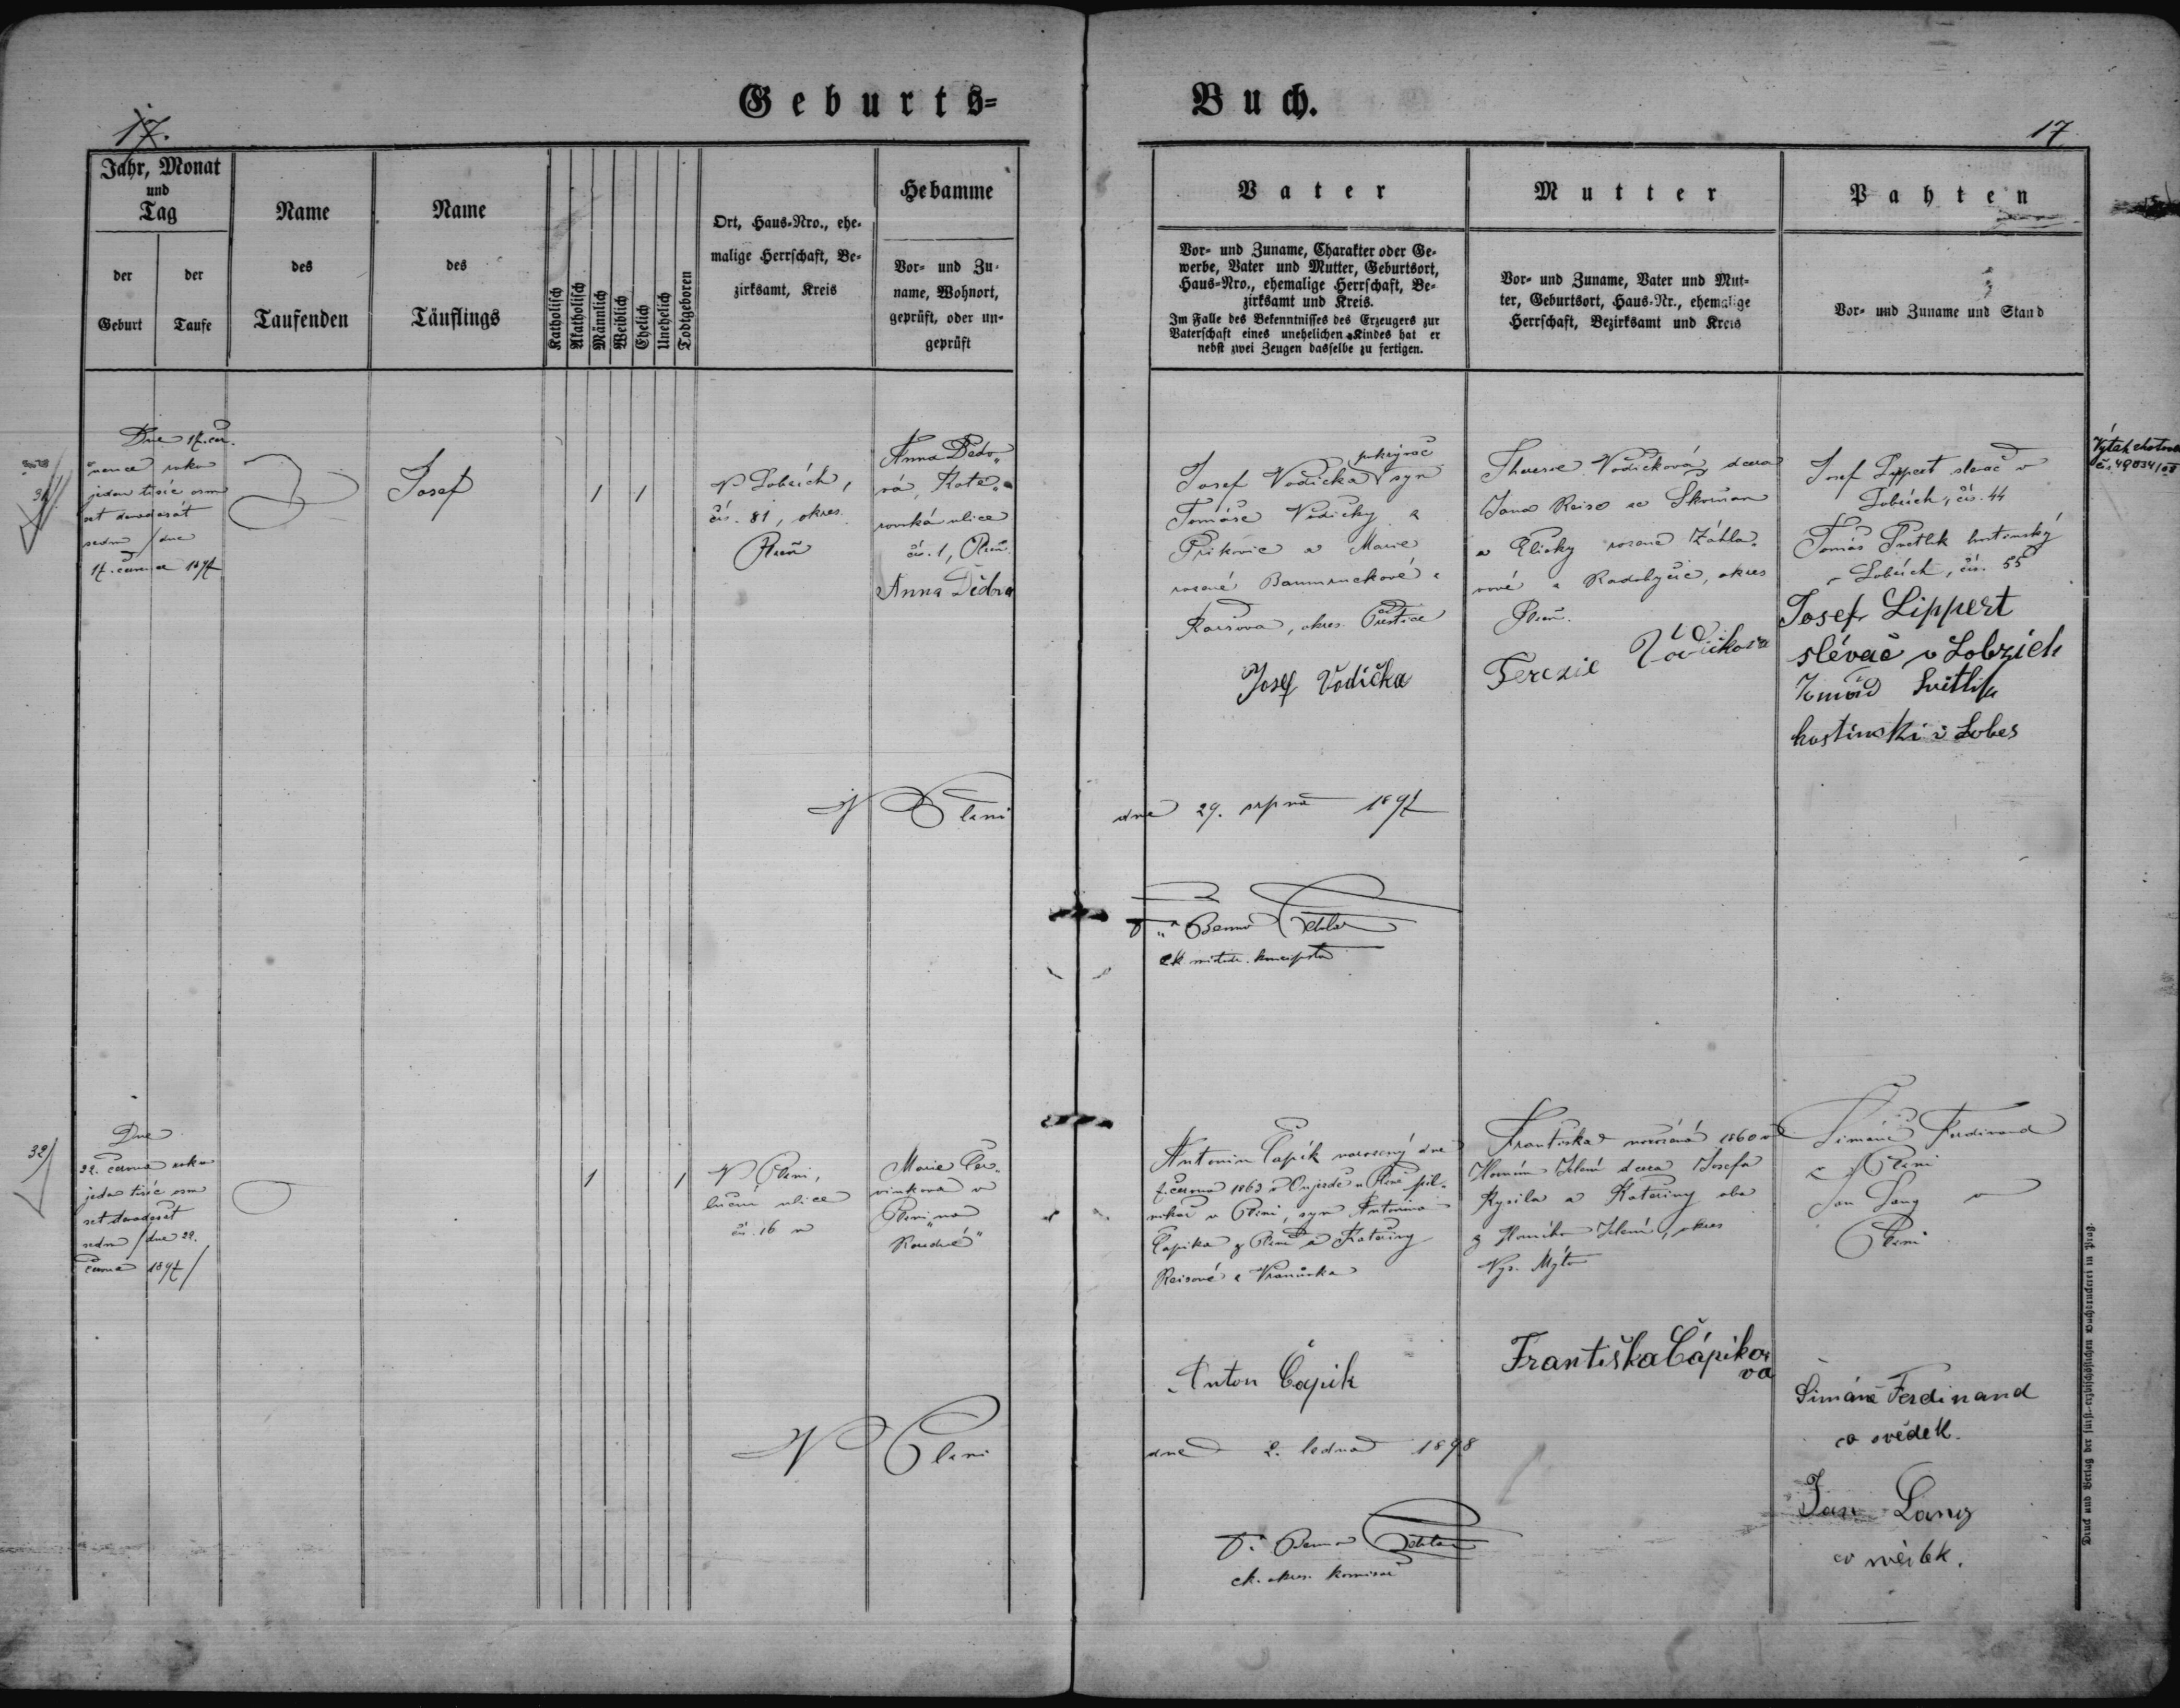 Geburts-
Buch.
17.
17
Jahr, Monat
und
Tag
der
Geburt
der
Taufe
Name
des
Taufenden
Name
des
Täuflings
Katholisch
Akatholisch
Männlich
Weiblich
Ehelich
Unehelich
Todtgeboren
Ort, Haus-Nro., ehe-
malige Herrschaft, Be-
zirksamt, Kreis
Hebamme
Vor- und Zu-
name, Wohnort,
geprüft, oder un-
geprüft
Vater
Vor- und Zuname, Charakter oder Ge-
werbe, Vater und Mutter, Geburtsort,
Haus-Nro., ehemalige Herrschaft, Be-
zirksamt und Kreis.
Im Falle des Bekenntnisses des Erzeugers zur
Vaterschaft eines unehelichen Kindes hat er
nebst zwei Zeugen dasselbe zu fertigen.
Mutter
Vor- und Zuname, Vater und Mut-
ter, Geburtsort, Haus-Nr., ehemalige
Herrschaft, Bezirksamt und Kreis
Pahten
Vor- und Zuname und Stand
31
Dne 17. čer.
vence roku
jeden tisíc osm
set devadesát
sedm / dne
17. července 1897
Josef
1
1
V Lobzích,
čís. 81, okres
Plzeň
Anna Dědo-
vá, Kote-
rovská ulice
čís. 1, Plzeň
Anna Dědová
Josef Vodička syn
Tomáše Vodičky z
Příkovic a Marie
rozené
okres Přeštice
Josef Vodička
Theresie Vodičková, dcera
Jana Reise ze Skvrňan
a Elišky rozené
z Radobyčic, okres
Plzeň.
Terezie Vodičkova
Josef Lippert slevač v
Lobzích, čís. 44
Tomáš Světlík hostinský
v Lobzích, čís. 55
Josef Lippert
slévač v Lobzích
Tomáš Světlík
hostinski v Lobes
Výtah
V Plzni
dne 29. srpna 1897
Dr. Benno
ck. místodr. koncipista
32
Dne
22. června roku
jeden tisíc osm
set devadesát
sedm / dne 22.
června 1897 /
1
1
V Plzni,
ulice
čís. 16
Marie Čer-
vinkova v
Plzni „na
Roudné“
Antonín Čapík narozený dne
7. června 1863 v Oujezdě u Plzně
v Plzni, syn Antonína
Čapíka z Plzně a Kateřiny
Reisové z
Anton Čapik
Františka narozená 1860 v
Horním Jelení dcera Josefa
Kysila a Kateřiny oba
z Horního Jelení, okres
Vys. Mýto
Františka Čápiko-
va
Šimáně Ferdinand
v Plzni
Jan Lang v
Plzni
Šimáně Ferdinand
co svědek.
Jan Lang
co svědek.
V Plzni
dne 2. ledna 1898
Dr. Benno
ck. okres. komisař
Druck und Verlag der fürst-erzbischöflichen Buchdruckerei in Prag.